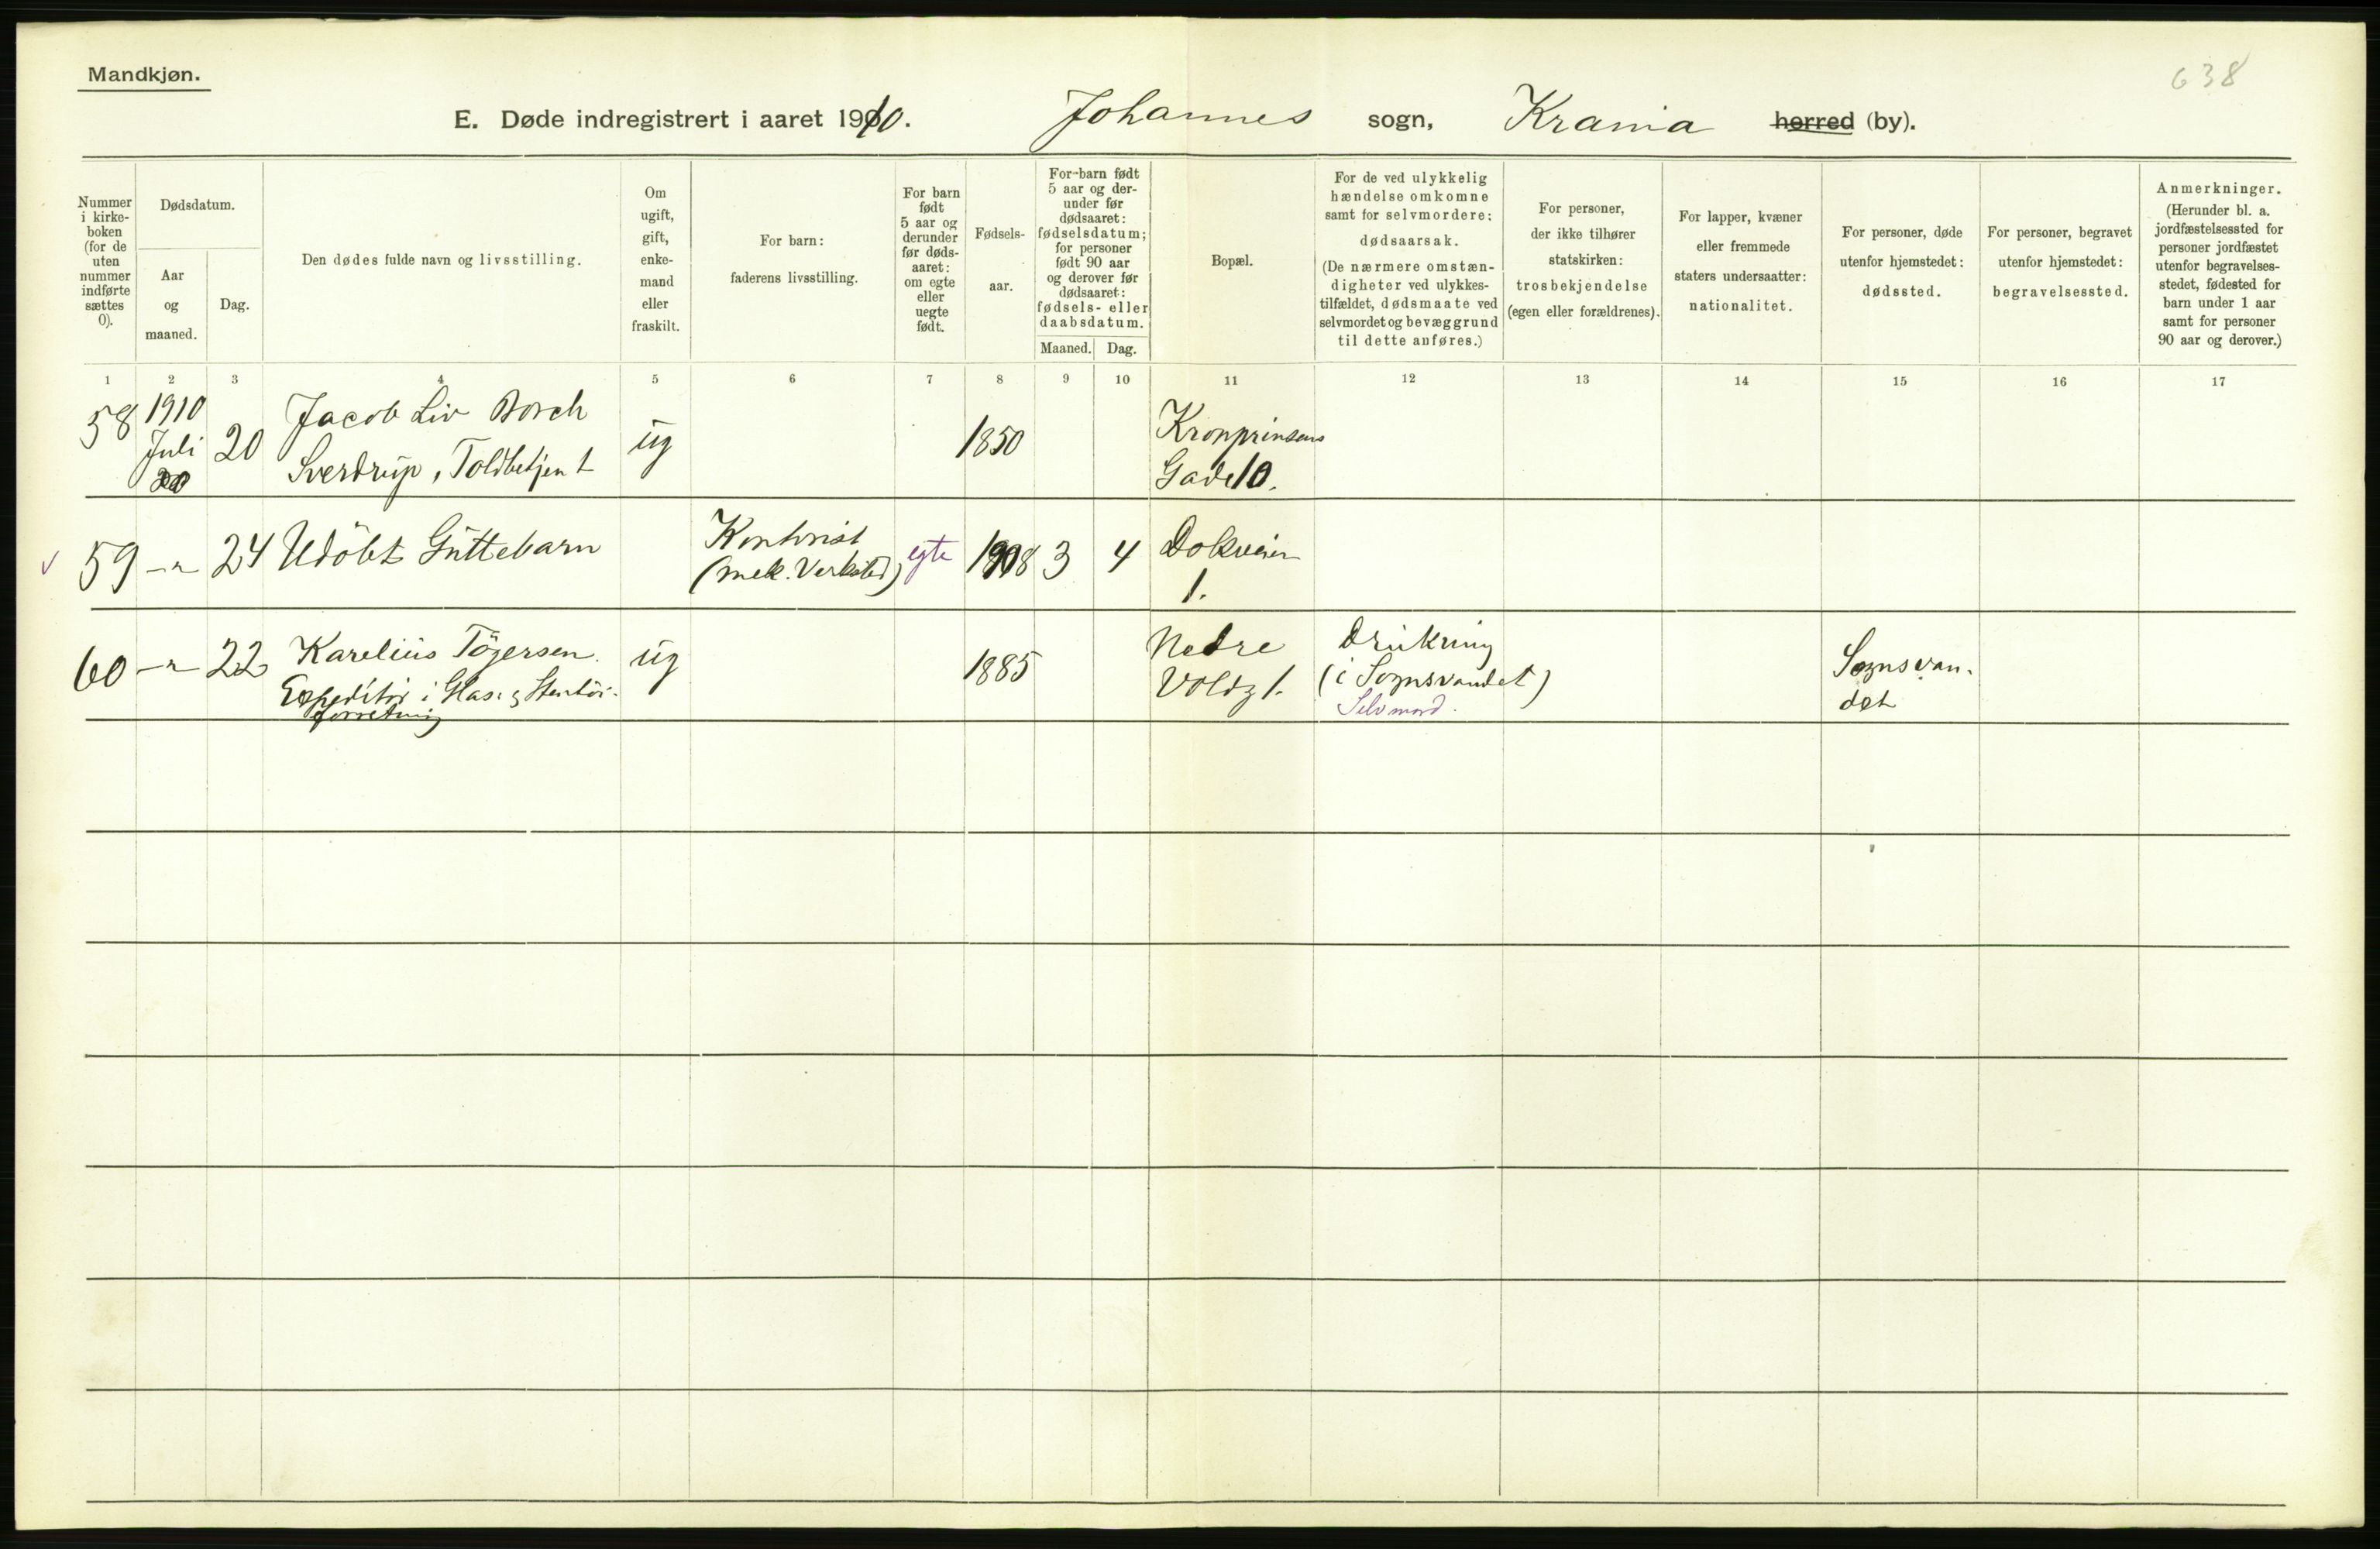 Mandkjøn.
638
E. Døde indregistrert i aaret 1910. Johannes sogn, Krania herred (by).
Nummer i kirkeboken (for de uten nummer indførte sættes 0).
Dødsdatum.
Aar og maaned.
Dag.
Den dødes fulde navn og livsstilling.
Om ugift, gift, enkemand eller fraskilt.
For barn: faderens livsstilling.
For barn født 5 aar og derunder før dødsaaret: om egte eller uegte født.
Fødselsaar.
For barn født 5 aar og derunder før dødsaaret: fødselsdatum; for personer født 90 aar og derover før dødsaaret: fødsels- eller daabsdatum.
Maaned. Dag.
Bopæl.
For de ved ulykkelig hændelse omkomne samt for selvmordere: dødsaarsak. (De nærmere omstændigheter ved ulykkestilfældet, dødsmaate ved selvmordet og bevæggrund til dette anføres.)
For personer, der ikke tilhører statskirken: trosbekjendelse (egen eller forældrenes).
For lapper, kvæner eller fremmede staters undersaatter: nationalitet.
For personer, døde utenfor hjemstedet: dødssted.
For personer, begravet utenfor hjemstedet: begravelsessted.
Anmerkninger. (Herunder bl. a. jordfæstelsessted for personer jordfæstet utenfor begravelsesstedet, fødested for barn under 1 aar samt for personer 90 aar og derover.)
1 2 3 4 5 6 7 8 9 10 11 12 13 14 15 16 17
58 1910 Juli 20 Jacob Liv Borch
Sverdrup, Toldbetjent ug 1850 Kronprinsens
Gade 10.
59 -"- 24 Udöbt Guttebarn Kontorist
(mek. Verksted) egte 1908 3 4 Dokveien
1.
60 -"- 22 Karelius Tögersen.
Expeditör i Glas- & Stentöi-
forretning ug 1885 Nedre
Voldg 1. Drukning
(i Sognsvandet)
Selvmord. Sognsvan-
det